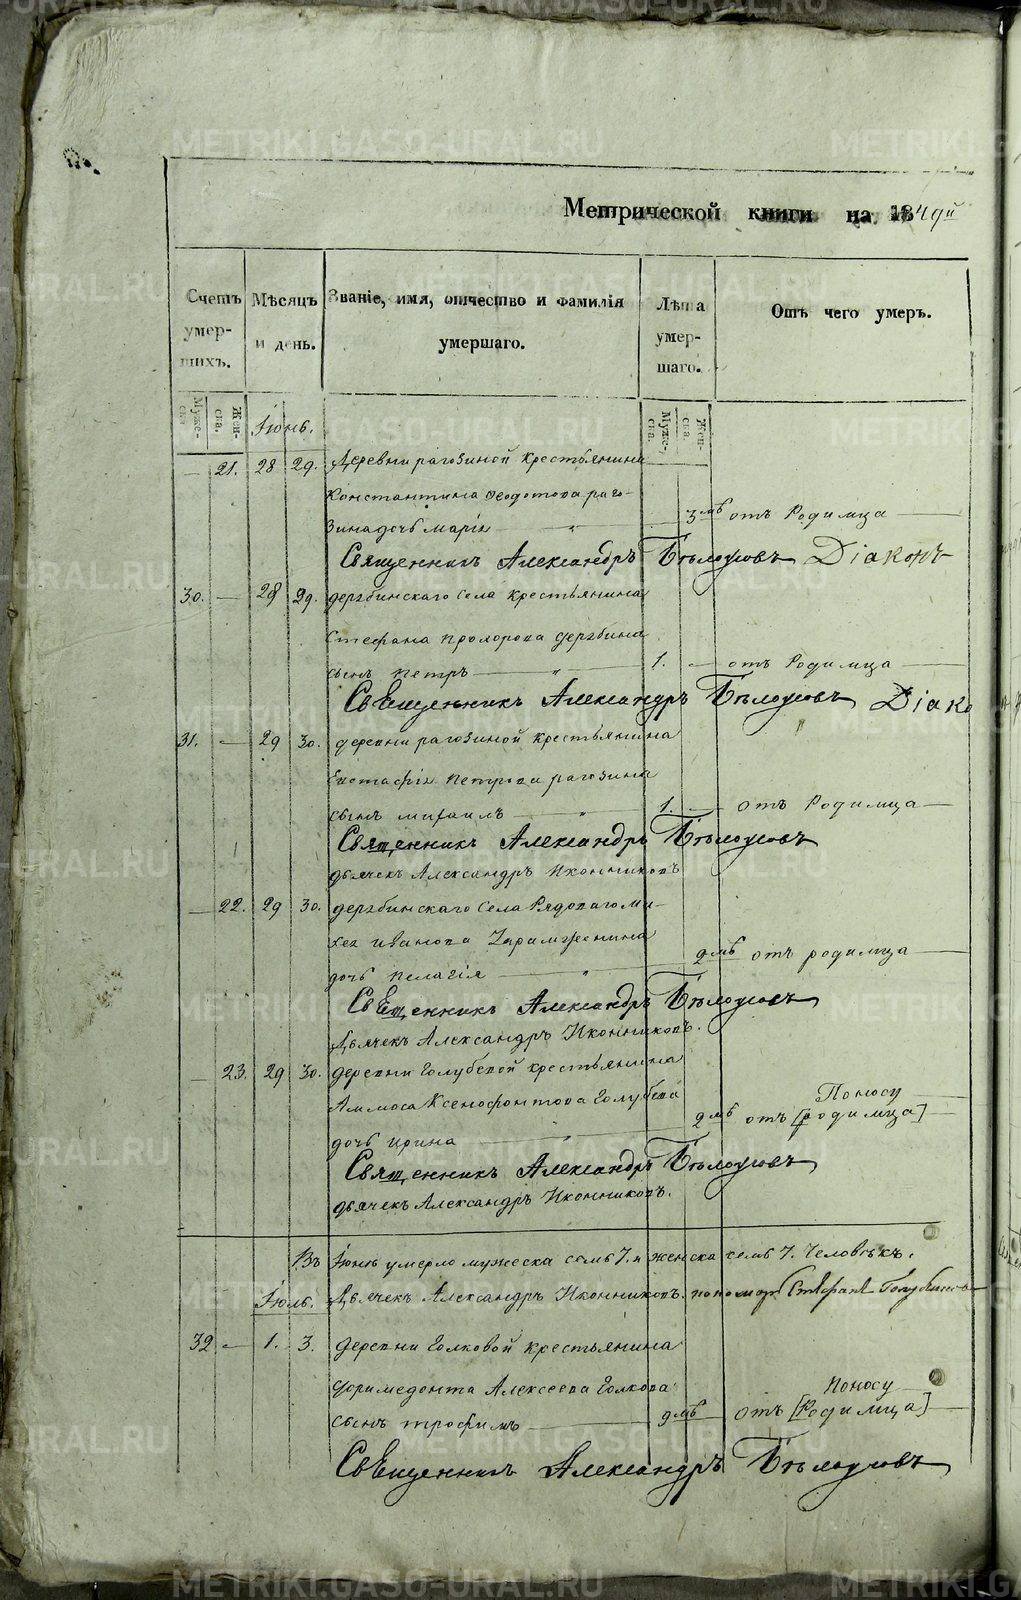 METRIKI.GASO-URAL.RU
Метрической книги на 184
Счетъ умер-шихъ.
Мѣсяцъ и день.
Званіе, имя, отчество и фамилія умершаго.
Лѣта умер-шаго.
Отъ чего умеръ.
Муже-ска. Жен-ска.
Муже-ска. Жен-ска.
Іюнь.
21. 28 29. Деревни рагозиной крестьянина
Константина Ѳеодотова раго-
зина дочь марія 3 мѣ отъ Родимца
Священникъ Александръ Бѣлоусовъ Діаконъ
30. 28 29. дерябинскаго села крестьянина
Стефана прохорова дерябина
сынъ петръ 1. отъ Родимца
Священникъ Александръ Бѣлоусовъ Діако
31. 29 30. деревни рагозиной крестьянина
Евстафія петрова рагозина
сынъ михаилъ 1. отъ Родимца
Священникъ Александръ Бѣлоусовъ
дьячекъ Александръ Иконниковъ
22. 29 30. дерябинскаго села Рядоваго Ми-
хея иванова
дочь пелагія мѣ отъ родимца
Священникъ Александръ Бѣлоусовъ
Дьячекъ Александръ Иконниковъ.
23. 29 30. деревни Голубевой крестьянина
Аммоса Ксенофонтова Голубева
Поносу
дочь ирина мѣ отъ [родимца]
Священникъ Александръ Бѣлоусовъ
дьячекъ Александръ Иконниковъ.
Въ Іюнѣ умерло мужеска семь 7. и женска семь 7. Человѣкъ.
Іюль. Дьячекъ Александръ Иконниковъ. пономарь Стефанъ
32 1. 3. деревни Голковой крестьянина
Форимедонта Алексеева Голкова
Поносу
сынъ трофимъ мѣ отъ [Родимца]
Священникъ Александръ Бѣлоусовъ